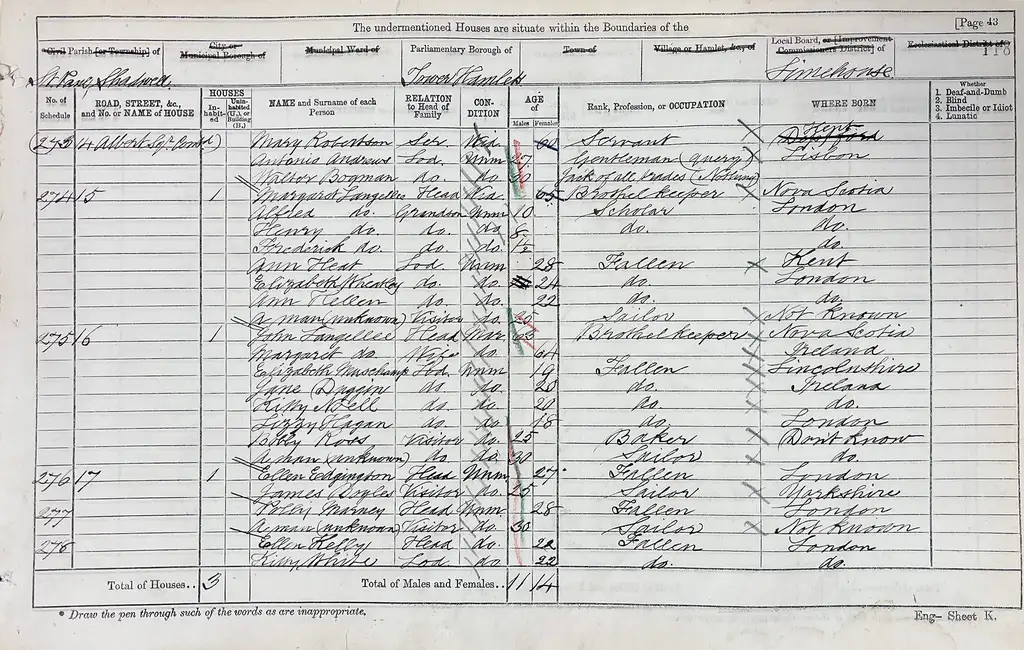 The undermentioned Houses are situate within the Boundaries of the [Page 43
Civil Parish [or Township] of City or Municipal Borough of Municipal Ward of Parliamentary Borough of Town of Village or Hamlet, &c., of Local Board, or [Improvement Commissioners District] of Ecclesiastical District of
118
St. Paul, Shadwell Tower Hamlets Limehouse
No. of Schedule ROAD, STREET, &c., and No. or NAME of HOUSE HOUSES Inhabited Uninhabited (U.), or Building (B.) NAME and Surname of each Person RELATION to Head of Family CONDITION AGE of Males Females Rank, Profession, or OCCUPATION WHERE BORN Whether 1. Deaf-and-Dumb 2. Blind 3. Imbecile or Idiot 4. Lunatic
(273) 14 Albert Sqr. Mary Robertson Ser. Wid. 60 Servant Kent Deptford
Antonio Andrews Lod. Unm 27 Gentleman (query) Lisbon
Walter Bogman do. do. 30 Jack of all trades (Nothing)
274 15 1 Margaret Langellee Head Wid. 65 Brothel keeper Nova Scotia
Alfred do. Grandson Unm 10 Scholar London
Henry do. do. do. 8 do. do.
Frederick do. do. do. do.
Ann Heat Lod. Unm 28 Fallen Kent
Elizabeth Wheatley do. do. 24 do. London
Ann Hellen do. do. 22 do. do.
A man (unknown) Visitor do. 25 Sailor Not Known
275 16 1 John Langellee Head Mar 63 Brothel keeper Nova Scotia
Margaret do. Wife do. 64 Ireland
Elizabeth Muschamp Lod. Unm 19 Fallen Lincolnshire
Jane Duggin do do. 20 do. Ireland
Kitty Neell do. do. 20 do. do.
Lizzy Hagan do. do. 18 do. London
Bobby Ross Visitor do. 25 Baker Don't Know
A man (unknown) do do. 30 Sailor do.
276 17 1 Ellen Edgington Head Unm 27 Fallen London
James Doyles Visitor do. 25 Sailor Yorkshire
277 Polly Marney Head Unm 28 Fallen London
A man (unknown) Visitor do. 30 Sailor Not Known
278 Ellen Kelby Head do. 22 Fallen London
Kitty White Lod do. 22 do. do.
Total of Houses.. 3 Total of Males and Females.. 11 14
* Draw the pen through such of the words as are inappropriate. Eng- Sheet K.